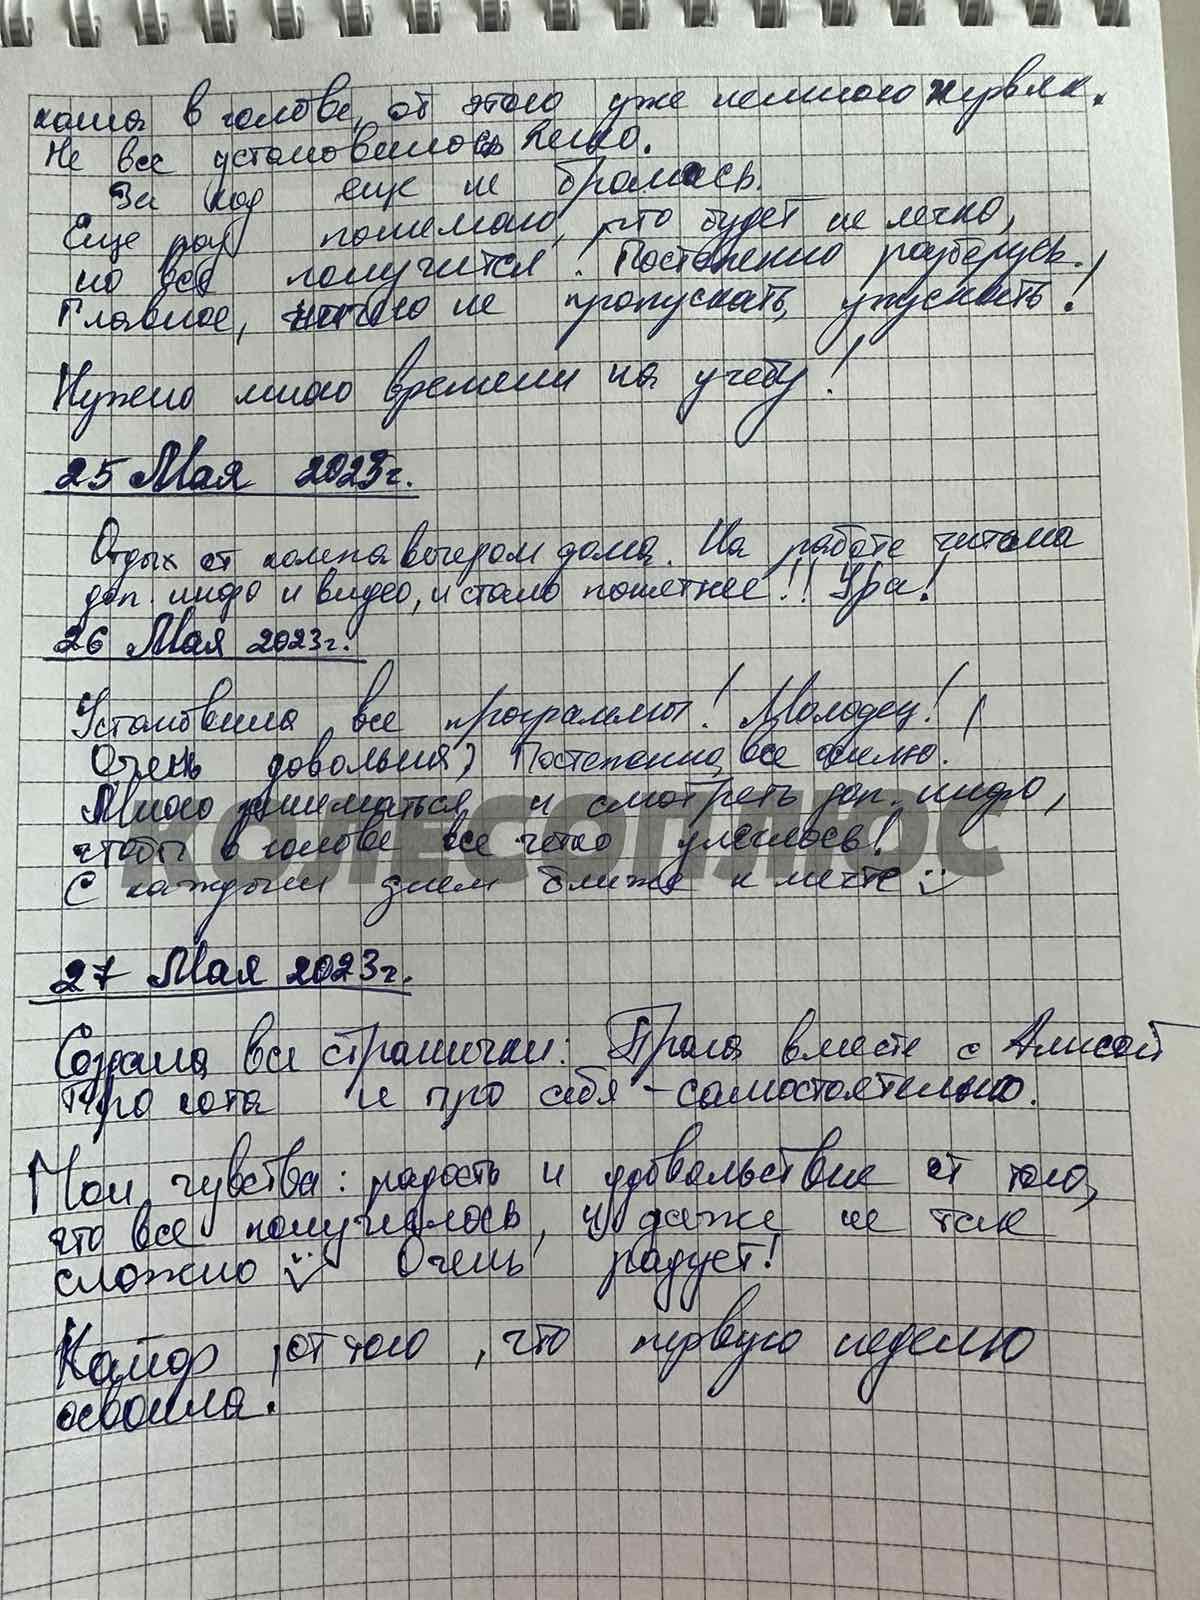 каша в голове, от этого уже немного нервяк.
Не все установилось легко.
За код еще не бралась.
Еще раз понимаю, что будет не легко,
но всё получится! Постепенно разберусь.
Главное, ничего не пропускать, упускать!
Нужно много времени на учебу!
25 Мая 2023г.
Отдых от компа вечером дома. На работе читала
доп. инфо и видео, и стало понятнее!! Ура!
26 Мая 2023г.
Установила все программы! Молодец!
Очень довольна) Постепенно, все осилю!
Много заниматься и смотреть доп. инфо,
чтобы в голове все четко улеглось!
КОЛЕСОПЛЮС
С каждым днем ближе к мечте
27 Мая 2023г.
Создала все странички: вместе с Алисой
Про кота и про себя - самостоятельно.
Мои чувства: радость и удовольствие от того,
что все получилось, и даже не так
сложно Очень радует!
Кайф от того, что первую неделю
освоила!